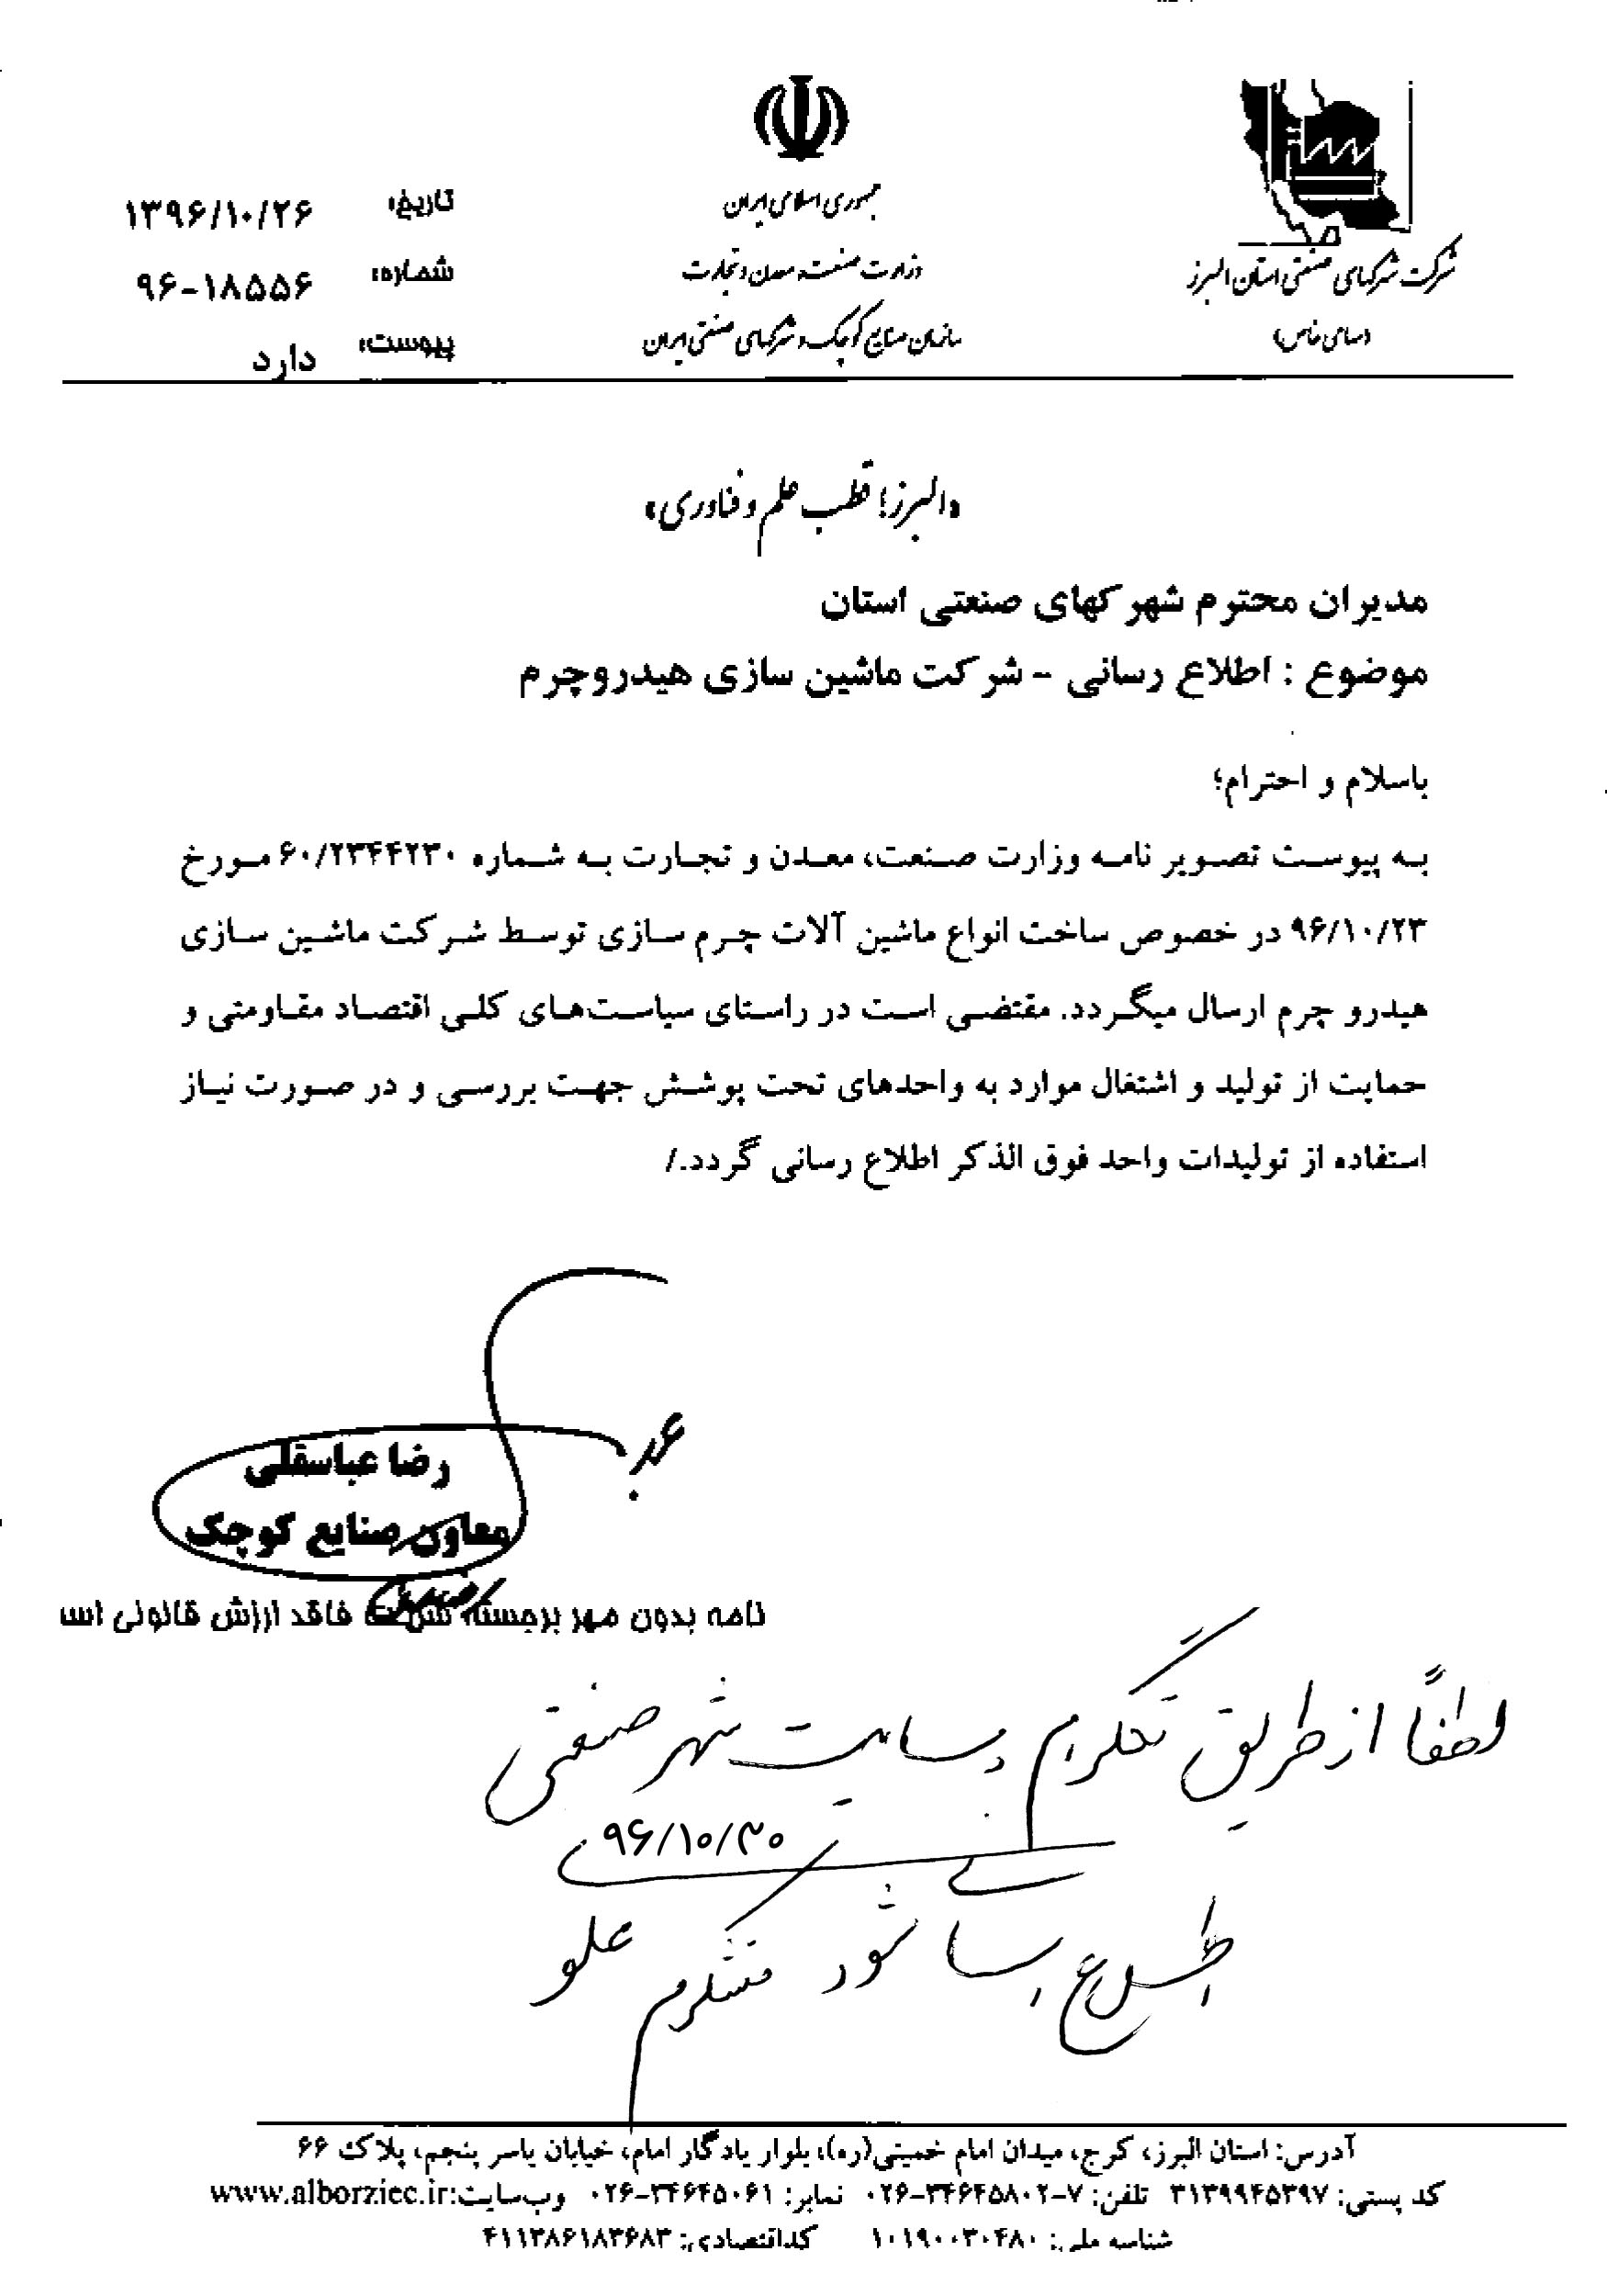 شرکت شهرکهای صنعتی استان البرز
(سهامی خاص)
جمهوری اسلامی ایران
وزارت صنعت، معدن و تجارت
سازمان صنایع کوچک و شهرکهای صنعتی ایران
تاریخ: ۱۳۹۶/۱۰/۲۶
شماره: ۹۶-۱۸۵۵۶
پیوست: دارد
«البرز؛ قطب علم و فناوری»
مدیران محترم شهرکهای صنعتی استان
موضوع : اطلاع رسانی - شرکت ماشین سازی هیدروچرم
باسلام و احترام؛
به پیوست تصویر نامه وزارت صنعت، معدن و تجارت به شماره ۶۰/۲۳۴۴۲۳۰ مورخ
۹۶/۱۰/۲۳ در خصوص ساخت انواع ماشین آلات چرم سازی توسط شرکت ماشین سازی
هیدرو چرم ارسال میگردد. مقتضی است در راستای سیاست‌های کلی اقتصاد مقاومتی و
حمایت از تولید و اشتغال موارد به واحدهای تحت پوشش جهت بررسی و در صورت نیاز
استفاده از تولیدات واحد فوق الذکر اطلاع رسانی گردد./
رضا عباسقلی
معاون صنایع کوچک
نامه بدون مهر برجسته شرکت فاقد ارزش قانونی است
لطفاً از طریق تلگرام و سایت شهر صنعتی
۹۶/۱۰/۳۰
اطلاع رسانی شود متشکرم
آدرس: استان البرز، کرج، میدان امام خمینی(ره)، بلوار یادگار امام، خیابان یاسر پنجم، پلاک ۶۶
کد پستی: ۳۱۳۹۹۴۵۳۹۷ تلفن: ۷-۳۴۶۴۵۸۰۲-۰۲۶ نمابر: ۳۴۶۴۵۰۶۱-۰۲۶ وب‌سایت:www.alborziec.ir
شناسه ملی: ۱۰۱۹۰۰۳۰۴۸۰ کداقتصادی: ۴۱۱۳۸۶۱۸۳۶۸۳